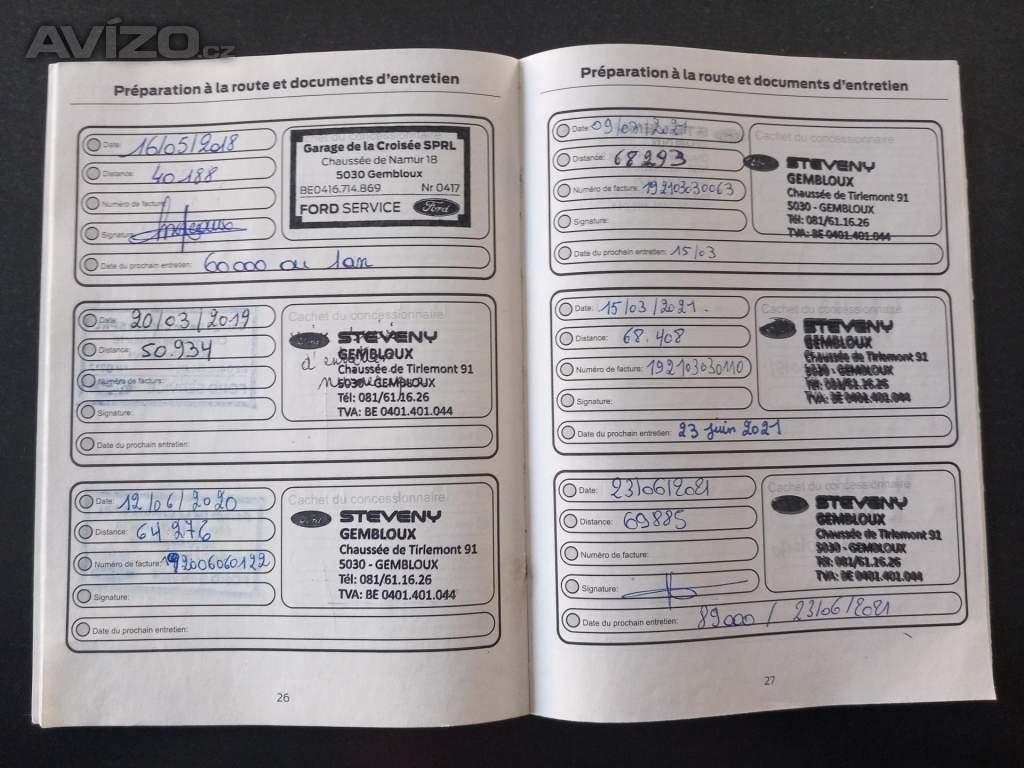 AVÍZO.cz
Préparation à la route et documents d'entretien
Date: 16/05/2018
Distance: 40 188
Numéro de facture:
Signature:
Date du prochain entretien: 60000 ou 1an
Cachet du concessionnaire
Garage de la Croisée SPRL
Chaussée de Namur 18
5030 Gembloux
BE0416.714.869 Nr 0417
FORD SERVICE Ford
Date: 20/03/2019
Distance: 50.934
Numéro de facture:
Signature:
Date du prochain entretien:
Cachet du concessionnaire
Ford STEVENY
GEMBLOUX
Chaussée de Tirlemont 91
5030 - GEMBLOUX
Tél: 081/61.16.26
TVA: BE 0401.401.044
Date: 12/06/2020
Distance: 64.276
Numéro de facture: 192006060122
Signature:
Date du prochain entretien:
Cachet du concessionnaire
Ford STEVENY
GEMBLOUX
Chaussée de Tirlemont 91
5030 - GEMBLOUX
Tél: 081/61.16.26
TVA: BE 0401.401.044
26
Préparation à la route et documents d'entretien
Date: 2021
Distance: 68293
Numéro de facture: 192103030063
Signature:
Date du prochain entretien: 15/03
Cachet du concessionnaire
Ford STEVENY
GEMBLOUX
Chaussée de Tirlemont 91
5030 - GEMBLOUX
Tél: 081/61.16.26
TVA: BE 0401.401.044
Date: 15/03/2021.
Distance: 68.408
Numéro de facture: 192103030110
Signature:
Date du prochain entretien: 23 juin 2021
Cachet du concessionnaire
Ford STEVENY
GEMBLOUX
Chaussée de Tirlemont 91
5030 - GEMBLOUX
Tél: 081/61.16.26
TVA: BE 0401.401.044
Date: 23/06/2021
Distance: 69885
Numéro de facture:
Signature:
Date du prochain entretien: 89000 / 23/06/2021
Cachet du concessionnaire
Ford STEVENY
GEMBLOUX
Chaussée de Tirlemont 91
5030 - GEMBLOUX
Tél: 081/61.16.26
TVA: BE 0401.401.044
27